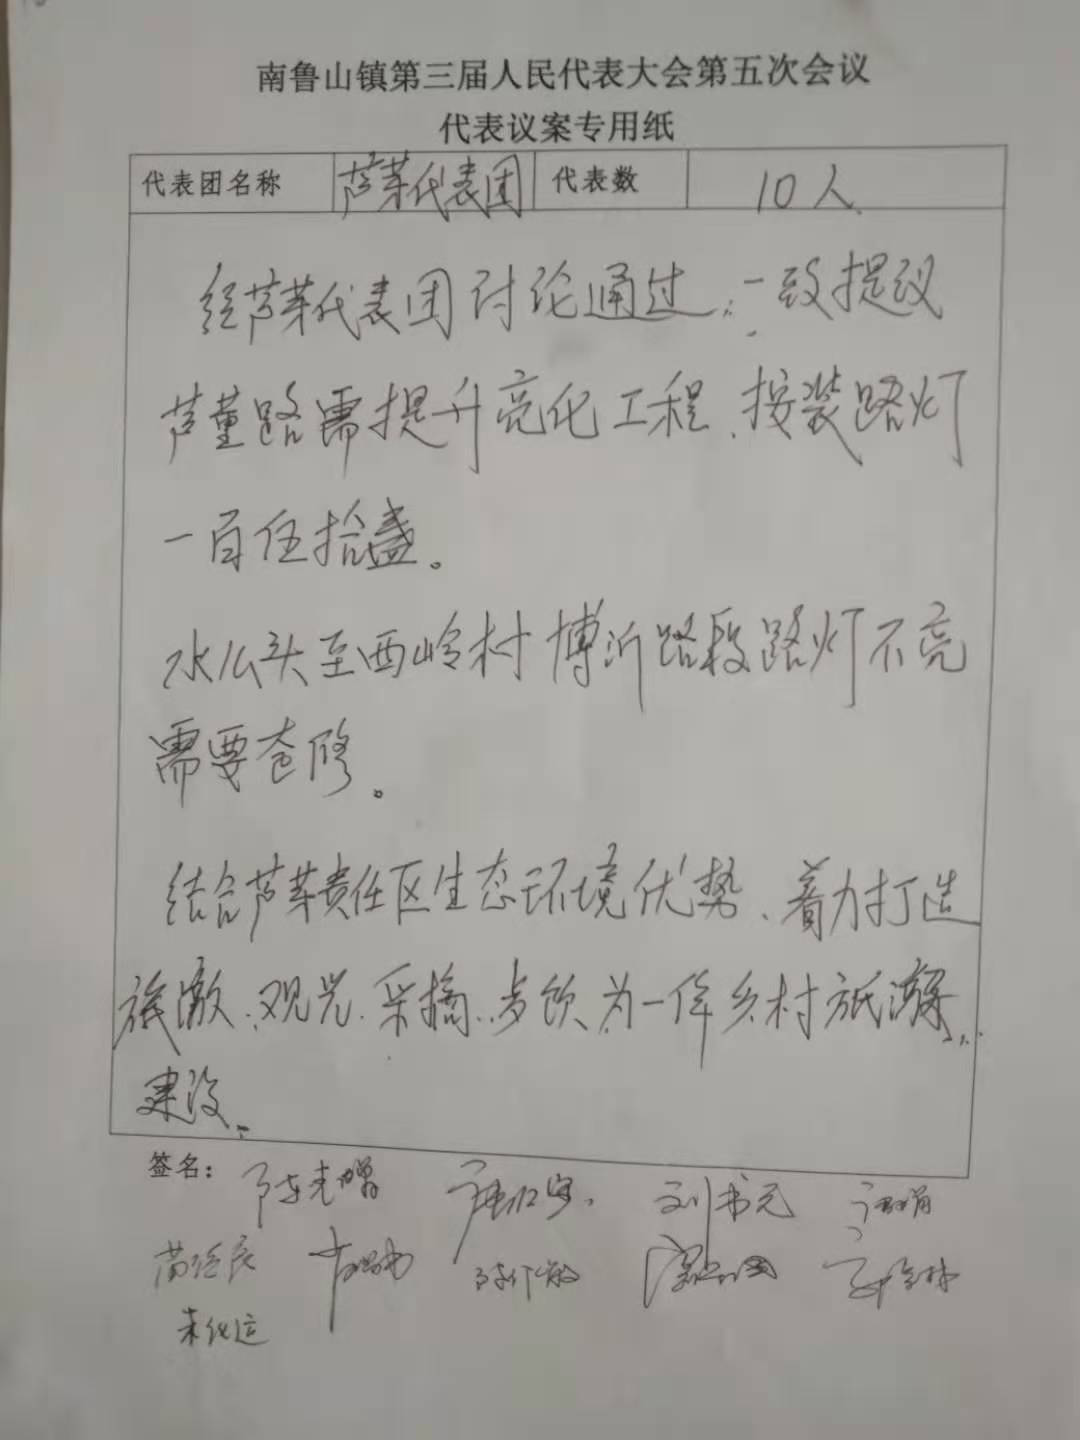 南鲁山镇第三届人民代表大会第五次会议
代表议案专用纸
代表团名称 芦芽代表团 代表数 10人
经芦芽代表团讨论通过,一致提议
芦董路需提升亮化工程、按装路灯
一百伍拾盏。
水么头至西岭村博沂路段路灯不亮
需要查修。
结合芦芽责任区生态环境优势、着力打造
旅游、观光、采摘、为一体乡村旅游
建设。
签名: 陈光增 唐仁宝 刘书元